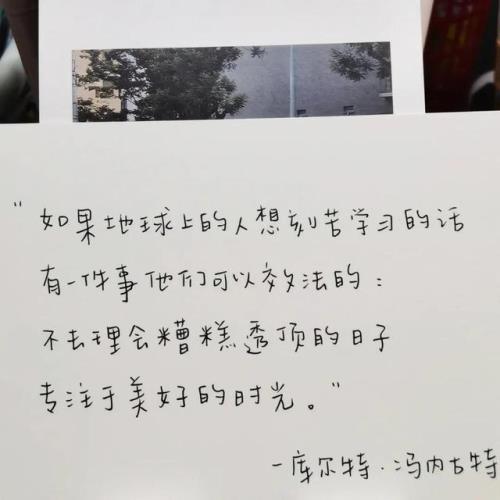 "如果地球上的人想刻苦学习的话
有一件事他们可以效法的：
不去理会糟糕透顶的日子
专注于美好的时光。"
—库尔特·冯内古特